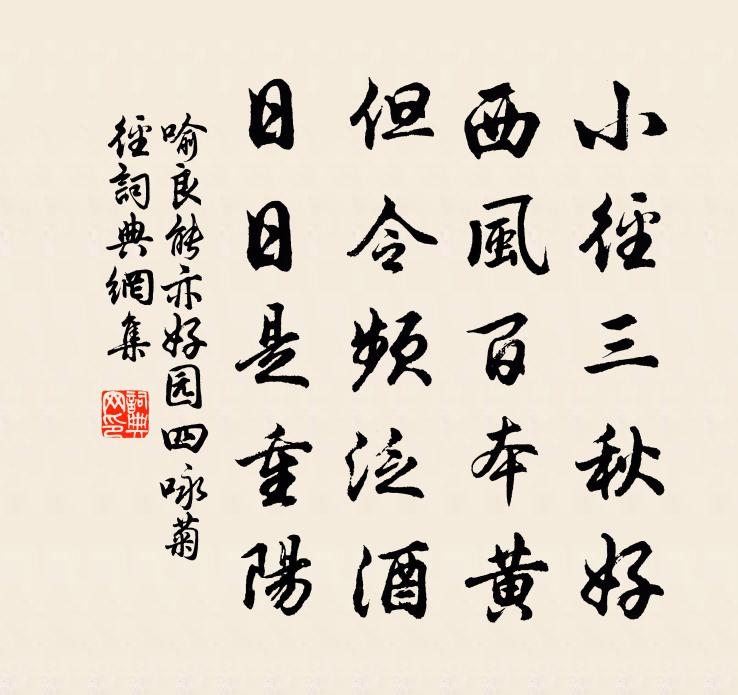 小徑三秋好
西風百本黃
但令頻泛酒
日日是重陽
喻良能亦好园四咏菊
徑詞典網集
詞典網印